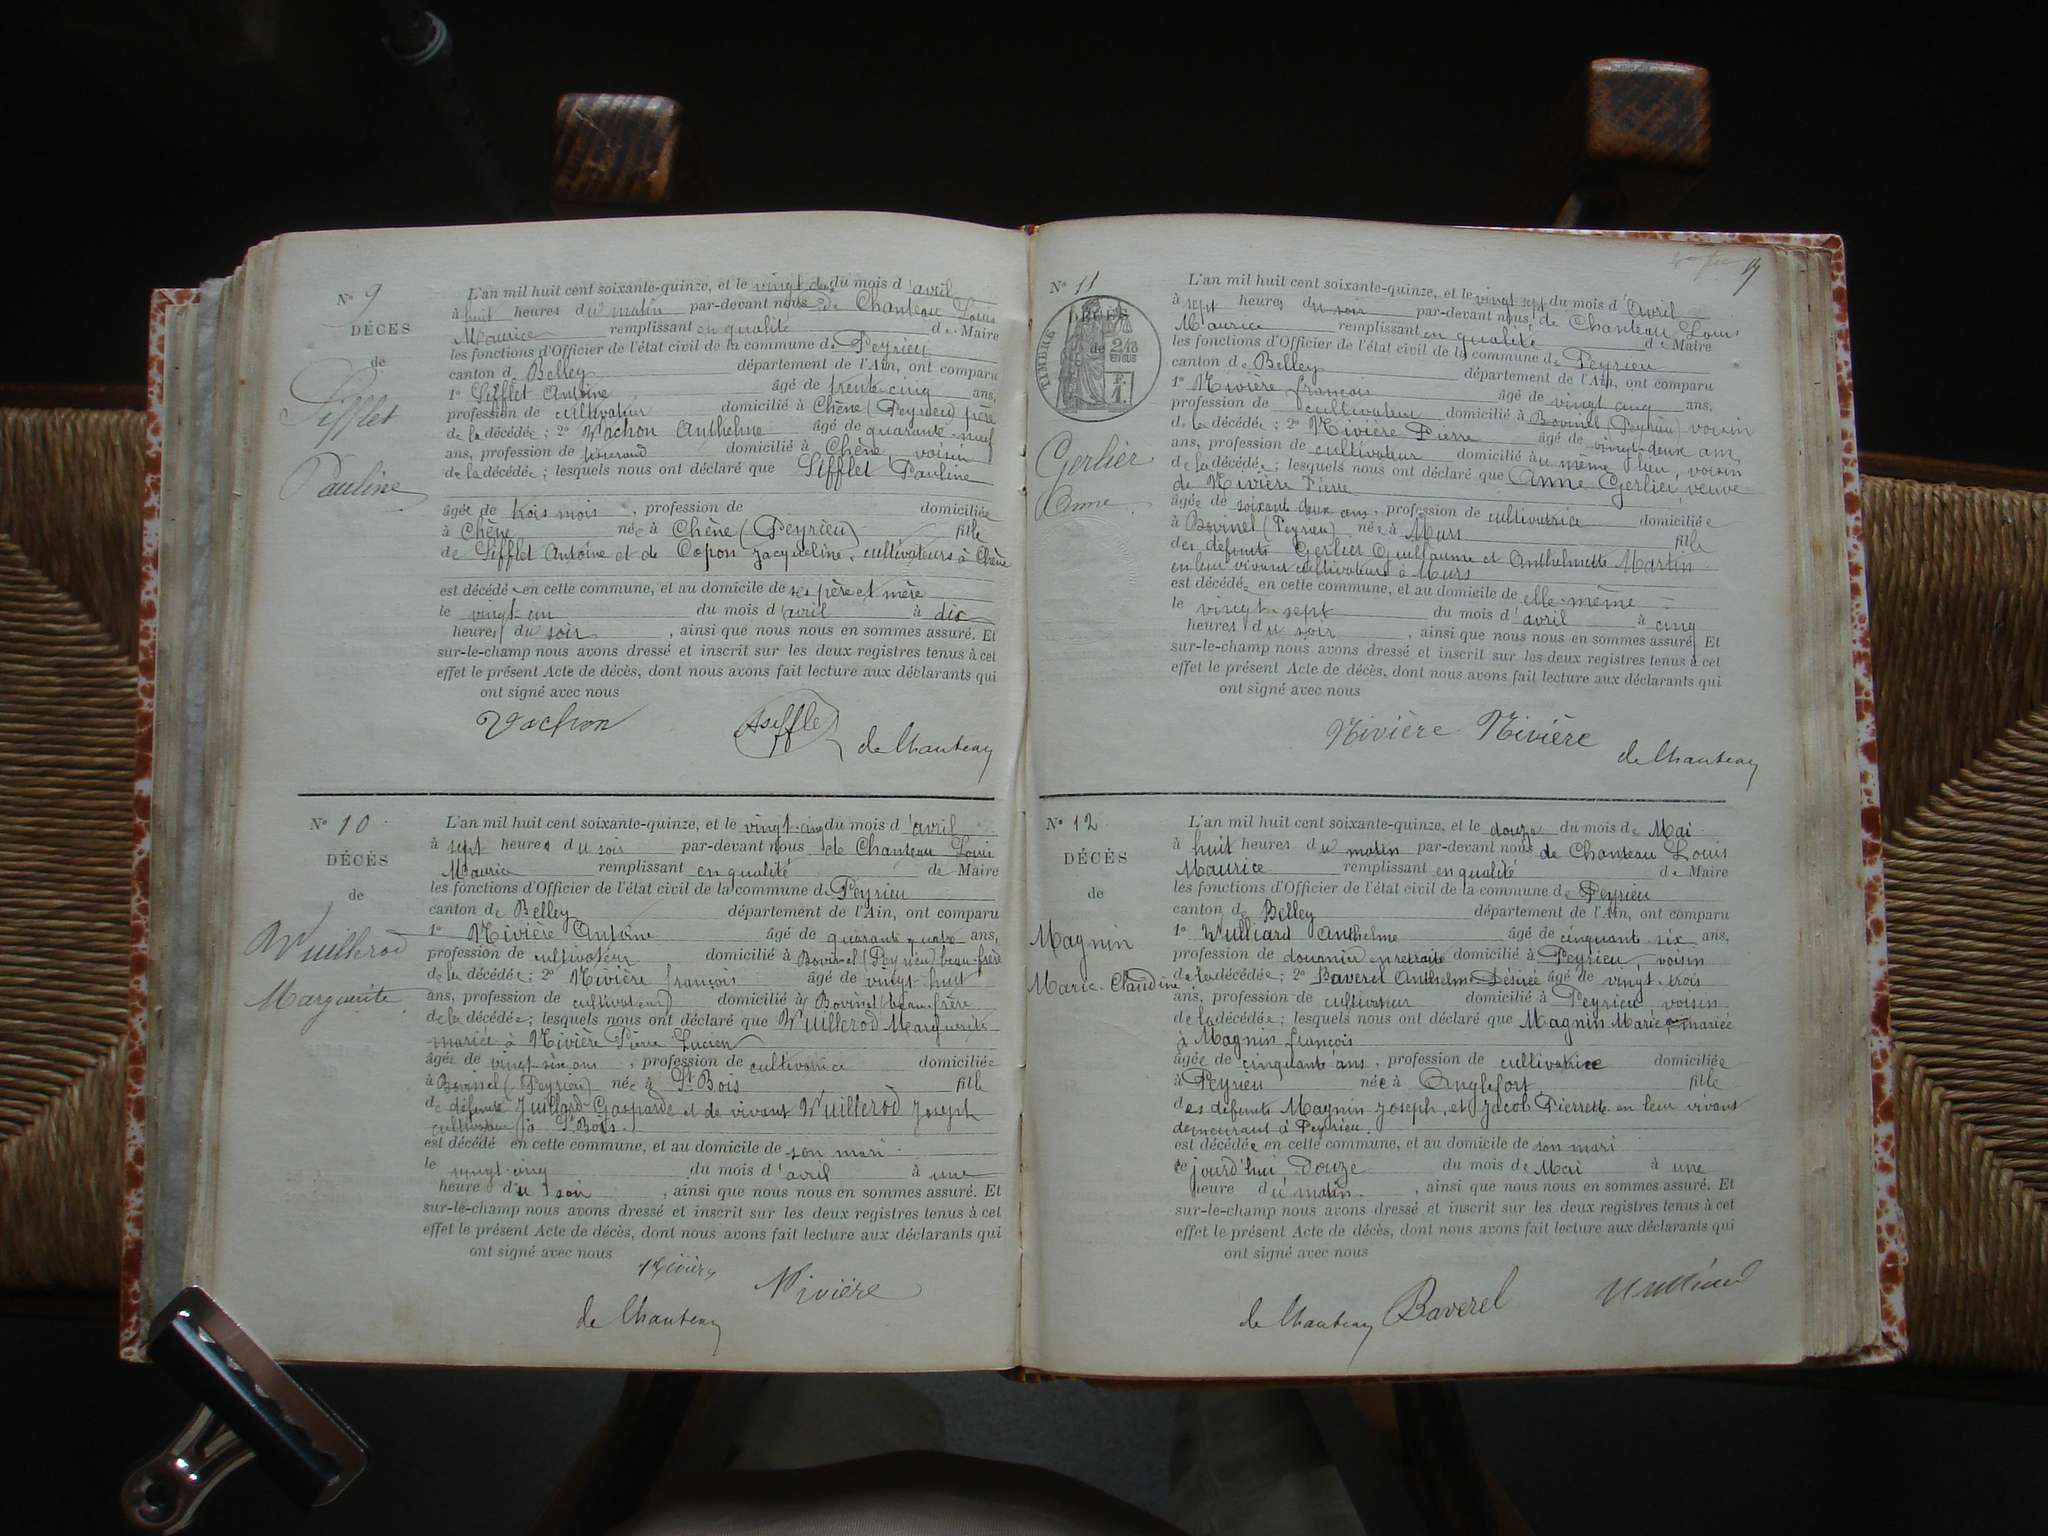 N° 9
DÉCÈS
de
Sifflet
Pauline
L'an mil huit cent soixante-quinze, et le vingt deux du mois d'avril
à huit heures du matin par-devant nous de Chanteau Louis
Maurice remplissant en qualité de Maire
les fonctions d'Officier de l'état civil de la commune de Peyrieu
canton de Belley département de l'Ain, ont comparu
1° Sifflet Antoine âgé de trente-cinq ans,
profession de cultivateur domicilié à Chêne (Peyrieu) père
de la décédée; 2° Vachon Anthelme âgé de quarante-neuf
ans, profession de tisserand domicilié à Chêne voisin
de la décédée; lesquels nous ont déclaré que Sifflet Pauline
âgée de trois mois, profession de domiciliée
à Chêne née à Chêne (Peyrieu) fille
de Sifflet Antoine et de Copon Jacqueline, cultivateurs à Chêne
est décédée en cette commune, et au domicile de ses père et mère
le vingt un du mois d'avril à dix
heures du soir, ainsi que nous nous en sommes assuré. Et
sur-le-champ nous avons dressé et inscrit sur les deux registres tenus à cet
effet le présent Acte de décès, dont nous avons fait lecture aux déclarants qui
ont signé avec nous
Vachon Asiffle de Chanteau
N° 10
DÉCÈS
de
Wuillerod
Marguerite
L'an mil huit cent soixante-quinze, et le vingt-cinq du mois d'avril
à sept heures du soir par-devant nous de Chanteau Louis
Maurice remplissant en qualité de Maire
les fonctions d'Officier de l'état civil de la commune de Peyrieu
canton de Belley département de l'Ain, ont comparu
1° Rivière Antoine âgé de quarante quatre ans,
profession de cultivateur domicilié à Bovinel (Peyrieu) beau-frère
de la décédée; 2° Rivière françois âgé de vingt-huit
ans, profession de cultivateur domicilié à Bovinel beau-frère
de la décédée; lesquels nous ont déclaré que Wuillerod Marguerite
mariée à Rivière Pierre Lucien
âgée de vingt-six ans, profession de cultivatrice domiciliée
à Bovinel (Peyrieu) née à St Bois fille
de défunte Juillard Gasparde et de vivant Wuillerod Joseph
cultivateur à St Bois.
est décédé en cette commune, et au domicile de son mari
le vingt-cinq du mois d'avril à une
heure du soir, ainsi que nous nous en sommes assuré. Et
sur-le-champ nous avons dressé et inscrit sur les deux registres tenus à cet
effet le présent Acte de décès, dont nous avons fait lecture aux déclarants qui
ont signé avec nous
Rivière Rivière
de Chanteau
N° 11
DÉCÈS
de
TIMBRE
2/10
EN SUS
F.
1.
Gerlier
Anne
L'an mil huit cent soixante-quinze, et le vingt sept du mois d'avril
à sept heures du soir par-devant nous, de Chanteau Louis
Maurice remplissant en qualité de Maire
les fonctions d'Officier de l'état civil de la commune de Peyrieu
canton de Belley département de l'Ain, ont comparu
1° Rivière françois âgé de vingt cinq ans,
profession de cultivateur domicilié à Bovinel (Peyrieu) voisin
de la décédée; 2° Rivière Pierre âgé de vingt-deux ans
ans, profession de cultivateur domicilié au même lieu, voisin
de la décédée; lesquels nous ont déclaré que Anne Gerlier, veuve
de Rivière Pierre
âgée de soixant deux ans, profession de cultivatrice domiciliée
à Bovinel (Peyrieu) née à Murs fille
des défunts Gerlier Guillaume et Anthelmette Martin
en leur vivant cultivateurs à Murs
est décédée en cette commune, et au domicile de elle-même
le vingt-sept du mois d'avril à cinq
heures du soir, ainsi que nous nous en sommes assuré. Et
sur-le-champ nous avons dressé et inscrit sur les deux registres tenus à cet
effet le présent Acte de décès, dont nous avons fait lecture aux déclarants qui
ont signé avec nous
Rivière Rivière de Chanteau
N° 12
DÉCÈS
de
Magnin
Marie-Claudine
L'an mil huit cent soixante-quinze, et le douze du mois de Mai
à huit heures du matin par-devant nous de Chanteau Louis
Maurice remplissant en qualité de Maire
les fonctions d'Officier de l'état civil de la commune de Peyrieu
canton de Belley département de l'Ain, ont comparu
1° Wulliard Anthelme âgé de cinquant-six ans,
profession de douanier en retraite domicilié à Peyrieu, voisin
de la décédée; 2° Baverel Anthelme Désirée âgé de vingt-trois
ans, profession de cultivateur domicilié à Peyrieu voisin
de la décédée; lesquels nous ont déclaré que Magnin Marie mariée
à Magnin françois
âgée de cinquante ans, profession de cultivatrice domiciliée
à Peyrieu née à Anglefort fille
des défunts Magnin Joseph, et Jacob Pierrette en leur vivant
demeurant à Peyrieu.
est décédée en cette commune, et au domicile de son mari
le jourd'hui Douze du mois de Mai à une
heure du matin, ainsi que nous nous en sommes assuré. Et
sur-le-champ nous avons dressé et inscrit sur les deux registres tenus à cet
effet le présent Acte de décès, dont nous avons fait lecture aux déclarants qui
ont signé avec nous
de Chanteau Baverel